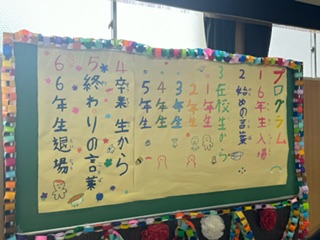 プログラム
1 6年生入場
2 始めの言葉
3 在校生から
1年生
2年生
3年生
4年生
5年生
4 卒業生から
5 終わりの言葉
6 6年生退場